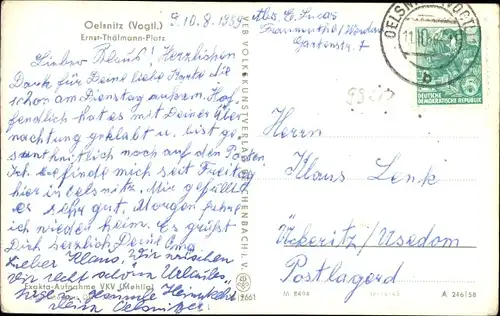 Oelsnitz (Vogtl.)
Ernst-Thälmann-Platz
10.8.1959
Lieber Klaus! Herzlichen
Dank für Deine liebe Karte die
schon am Dienstag ankam. Hof-
fendlich hat es mit Deiner Über
nachtung geklabt u. bist ge-
sundheitlich noch auf den Posten
Ich befinde mich seit Freitag
hier in Oelsnitz. Mir gefällts
sehr gut. Morgen fahre
ich wieder heim. Es grüßt
Dich herzlich Deine Oma
Lieber Klaus, wir wünschen
Dir recht schönen Urlaub
Deine Oelsnitzer
Exakta-Aufnahme VKV (Mehlig)
VEB VOLKSKUNSTVERLAG REICHENBACH I. V.
2661
Abs. E. Lucas
Fraureuth/Werdau
Gartenstr. 7
OELSNITZ (VOGTL)
b
DEUTSCHE
DEMOKRATISCHE REPUBLIK
Herrn
Klaus Lenk
Ückeritz/Usedom
Postlagerd
M 8494
A 246/58